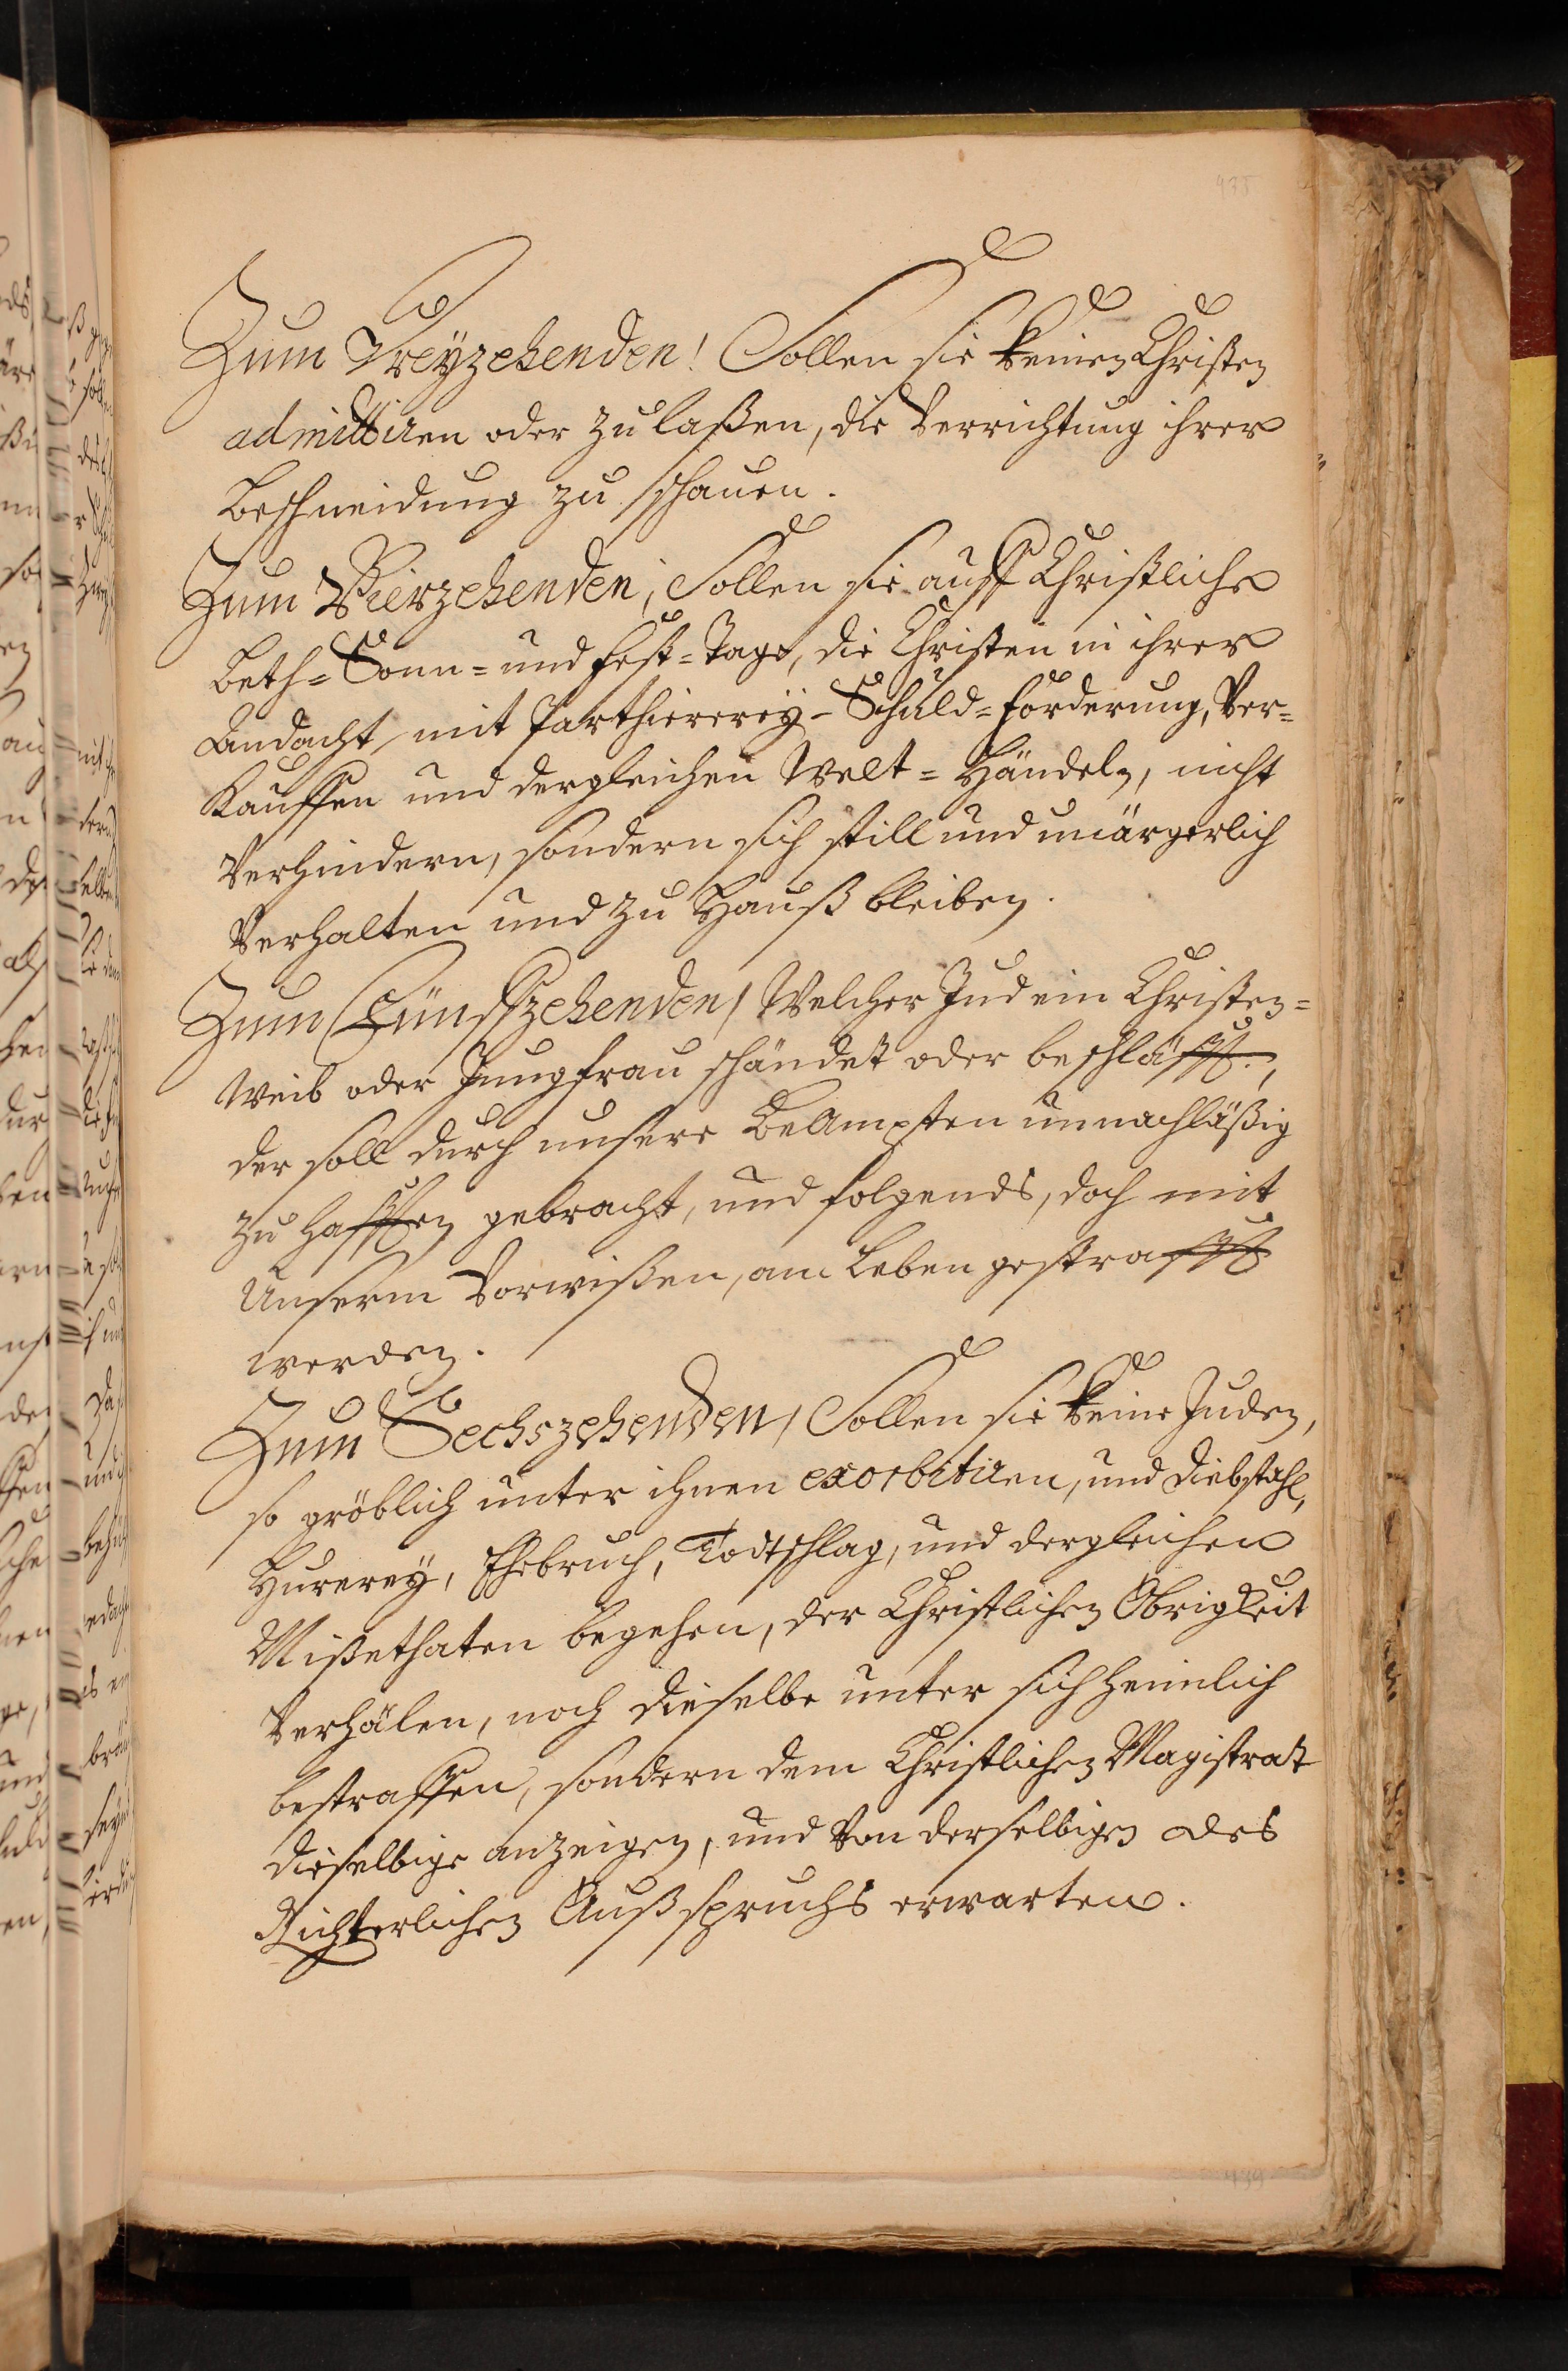 Zum Dreyzehenden! Sollen sie keinen Christen
admittiren oder zu laßen, die Verrichtung ihrer
Beschneidung zu schauen.
Zum Vierzehenden, Sollen sie auff Christliche
Beth= Sonn= und Fest= Tage, die Christen in ihrer
Andacht, mit Parthiererey- Schuld= forderung, Ver=
Kauffen und dergleichen Welt= Händeln, nicht
Verhindern, sondern sich still und unärgerlich
Verhalten und zu Hauß bleiben.
Zum Fünffzehenden, Welcher Jud ein Christen=
Weib oder Jungfrau schändet oder beschläfft,
der soll durch unsere BeAmpten unnachläßig
zu Hafften gebracht, und folgends, doch mit
Unserm Vorwißen, am Leben gestrafft
werden.
Zum Sechszehenden, Sollen sie keine Juden,
so gröblich unter ihnen exorbitiren, und Diebstahl,
Hurerey, Ehebruch, Todtschlag, und dergleichen
Mißethaten begehen, der Christlichen Obrigkeit
Verhälen, noch dieselbe unter sich heimlich
bestraffen, sondern dem Christlichen Magistrat
dieselbige anzeigen, und Von derselbigen des
Richterlichen Außspruchs erwarten.